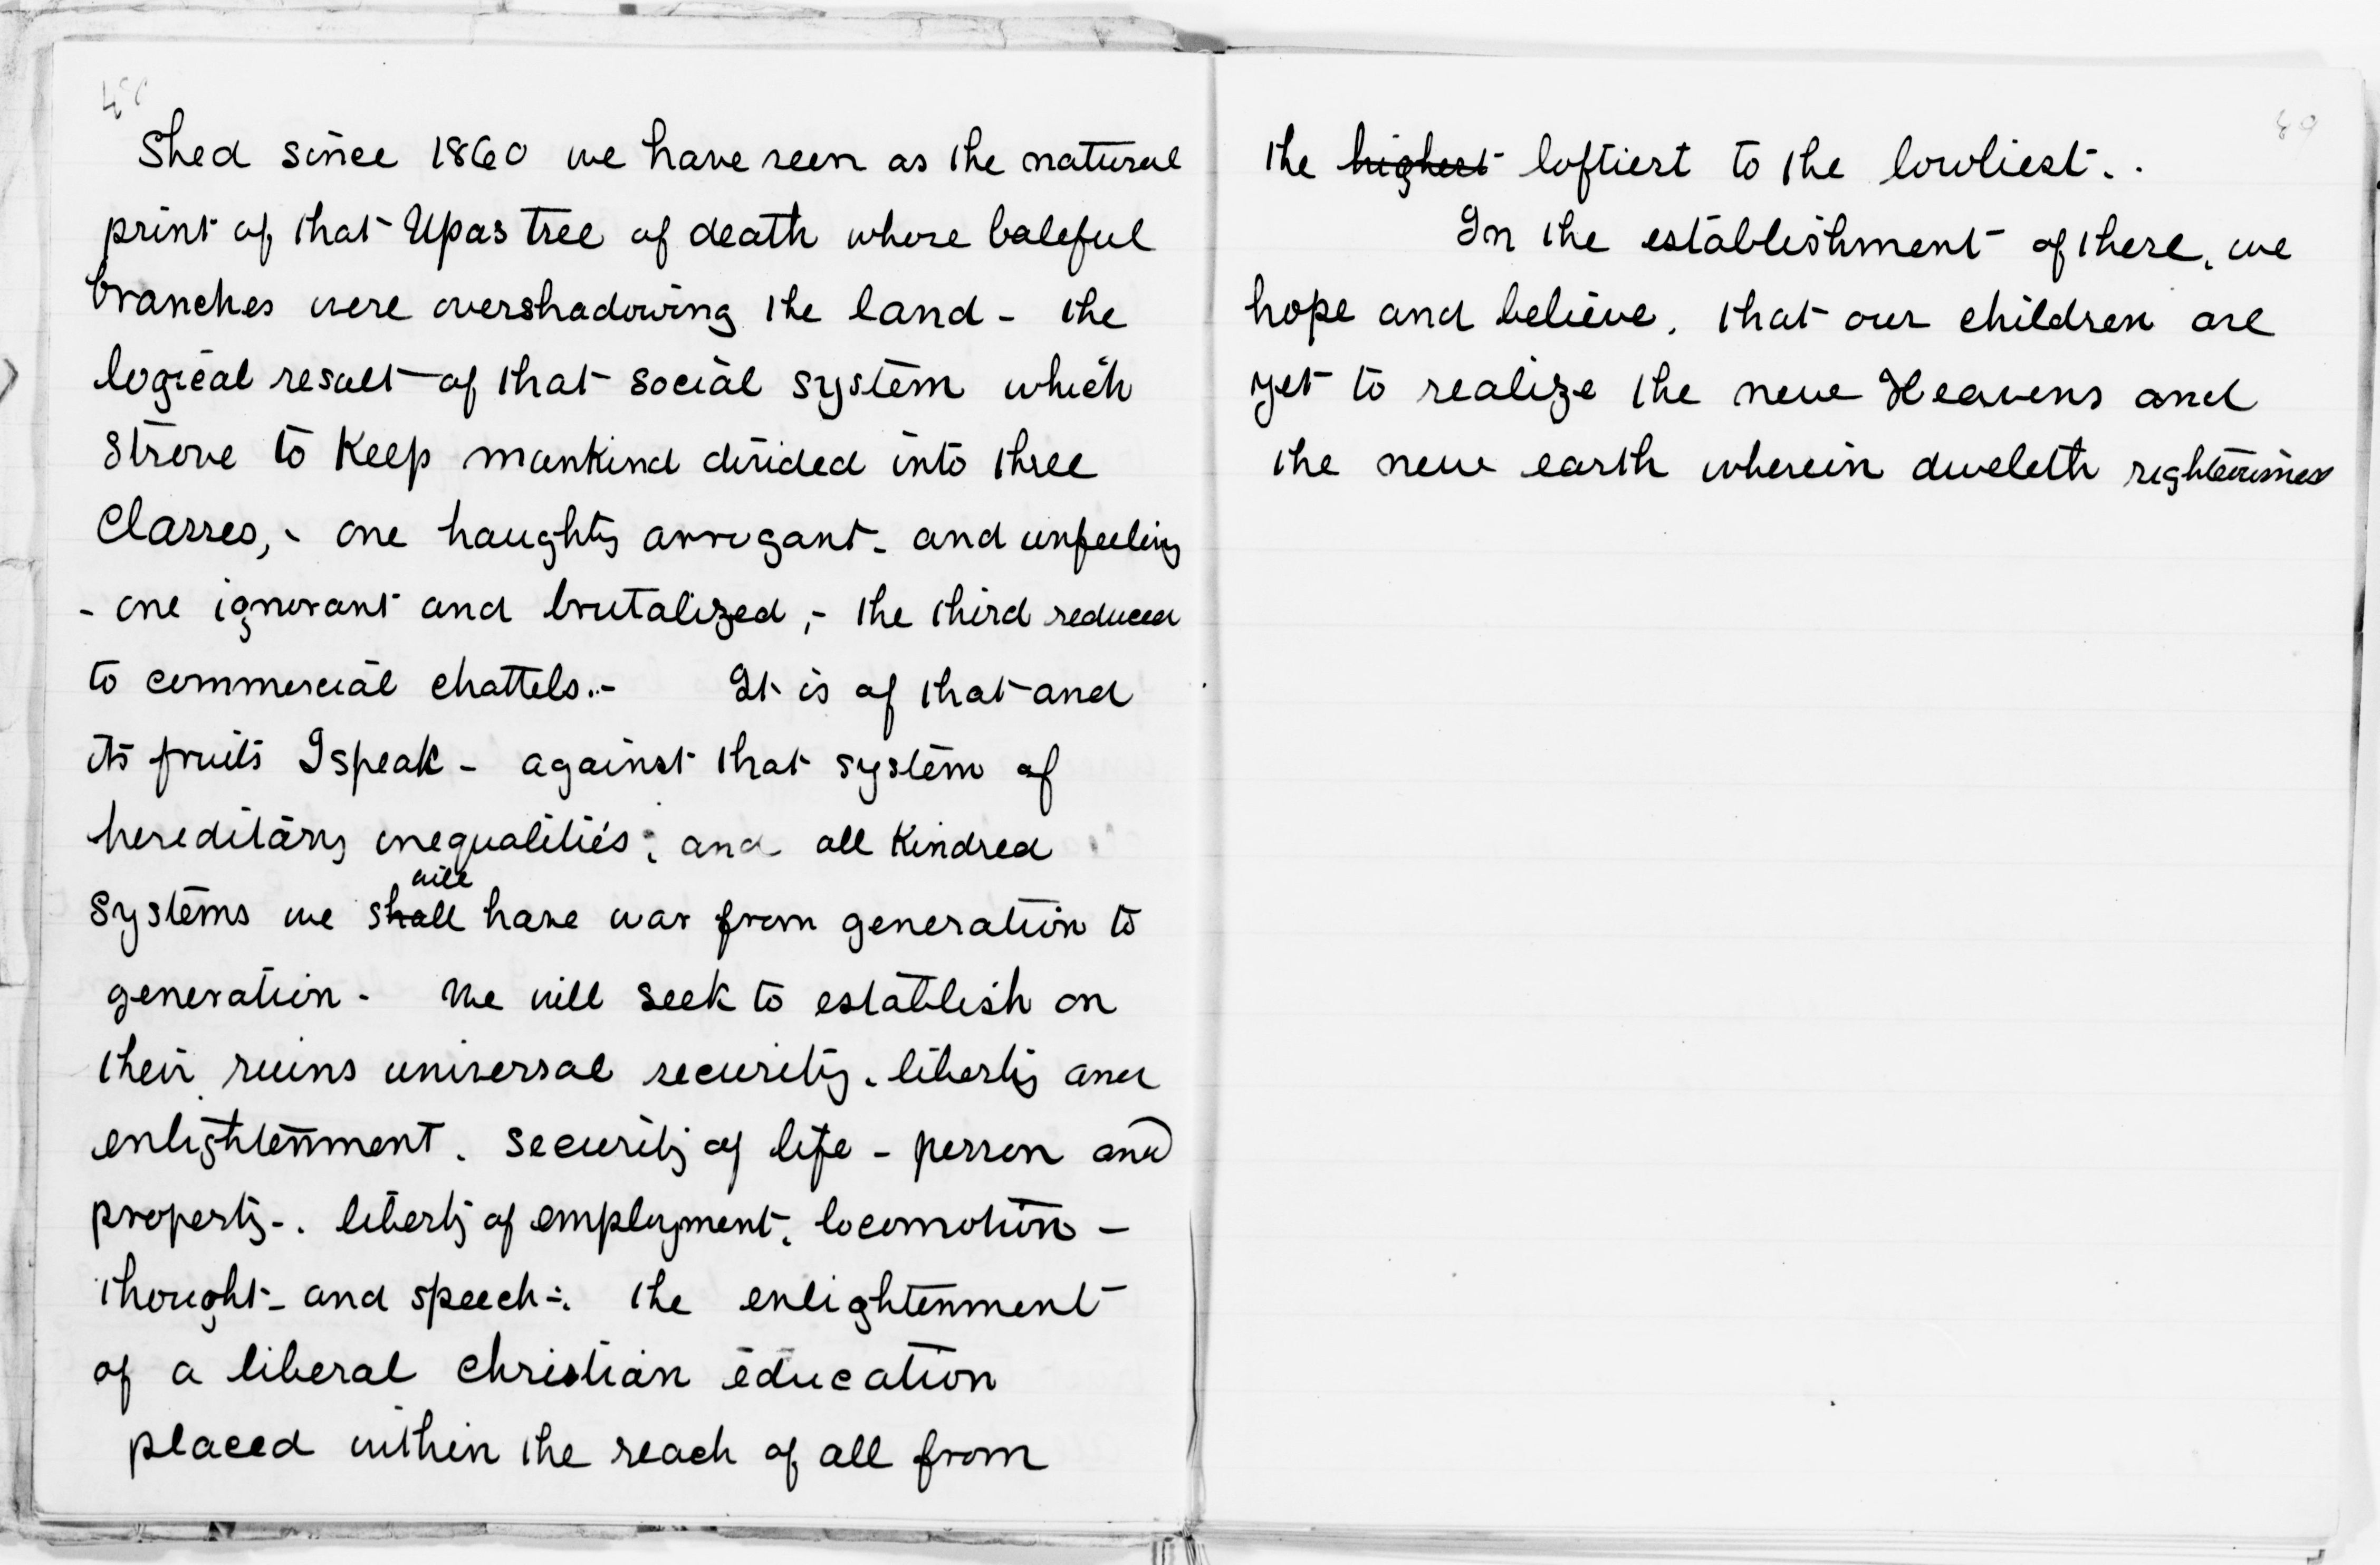 Shed since 1860 we have seen as the natural
print of that Upas tree of death whose baleful
branches were overshadowing the land - the
logical result of that social system which
strove to keep mankind divided into three
Classes, - one haughty arrogant - and unfeeling
- one ignorant and brutalized, - the third reduced
to commercial chattels. - It is of that and
its fruits I speak - against that system of
hereditary inequalities; and all kindred
will
systems we shall have war from generation to
generation - We will seek to establish on
their ruins universal security, liberty and
enlightenment. Security of life - person and
property -. liberty of employment, locomotion -
thought - and speech -: the enlightenment
of a liberal christian education
placed within the reach of all from
89
the highest loftiest to the lowliest. .
In the establishment of these, we
hope and believe, that our children are
yet to realize the new Heavens and
the new earth wherein dweleth righteousness